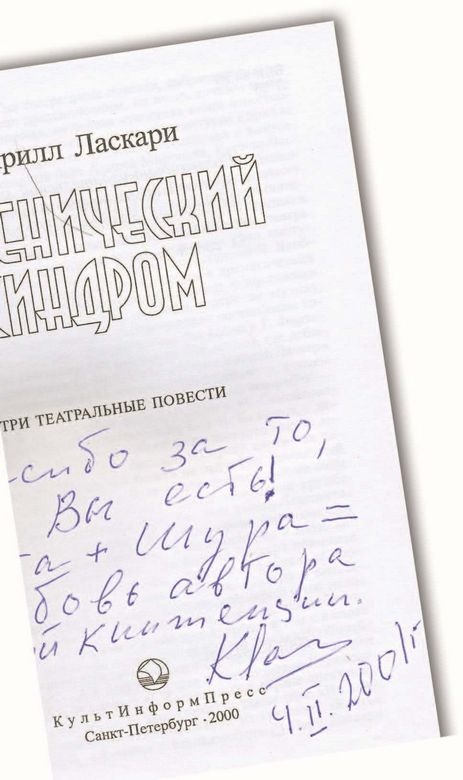 рилл Ласкари
ЕНИЧЕСКИЙ
ИНДРОМ
ТРИ ТЕАТРАЛЬНЫЕ ПОВЕСТИ
сибо за то,
Вы есть!
а + Шура =
бовь автора
й книженции.
КультИнформПресс
Санкт-Петербург · 2000
4.II.2001г